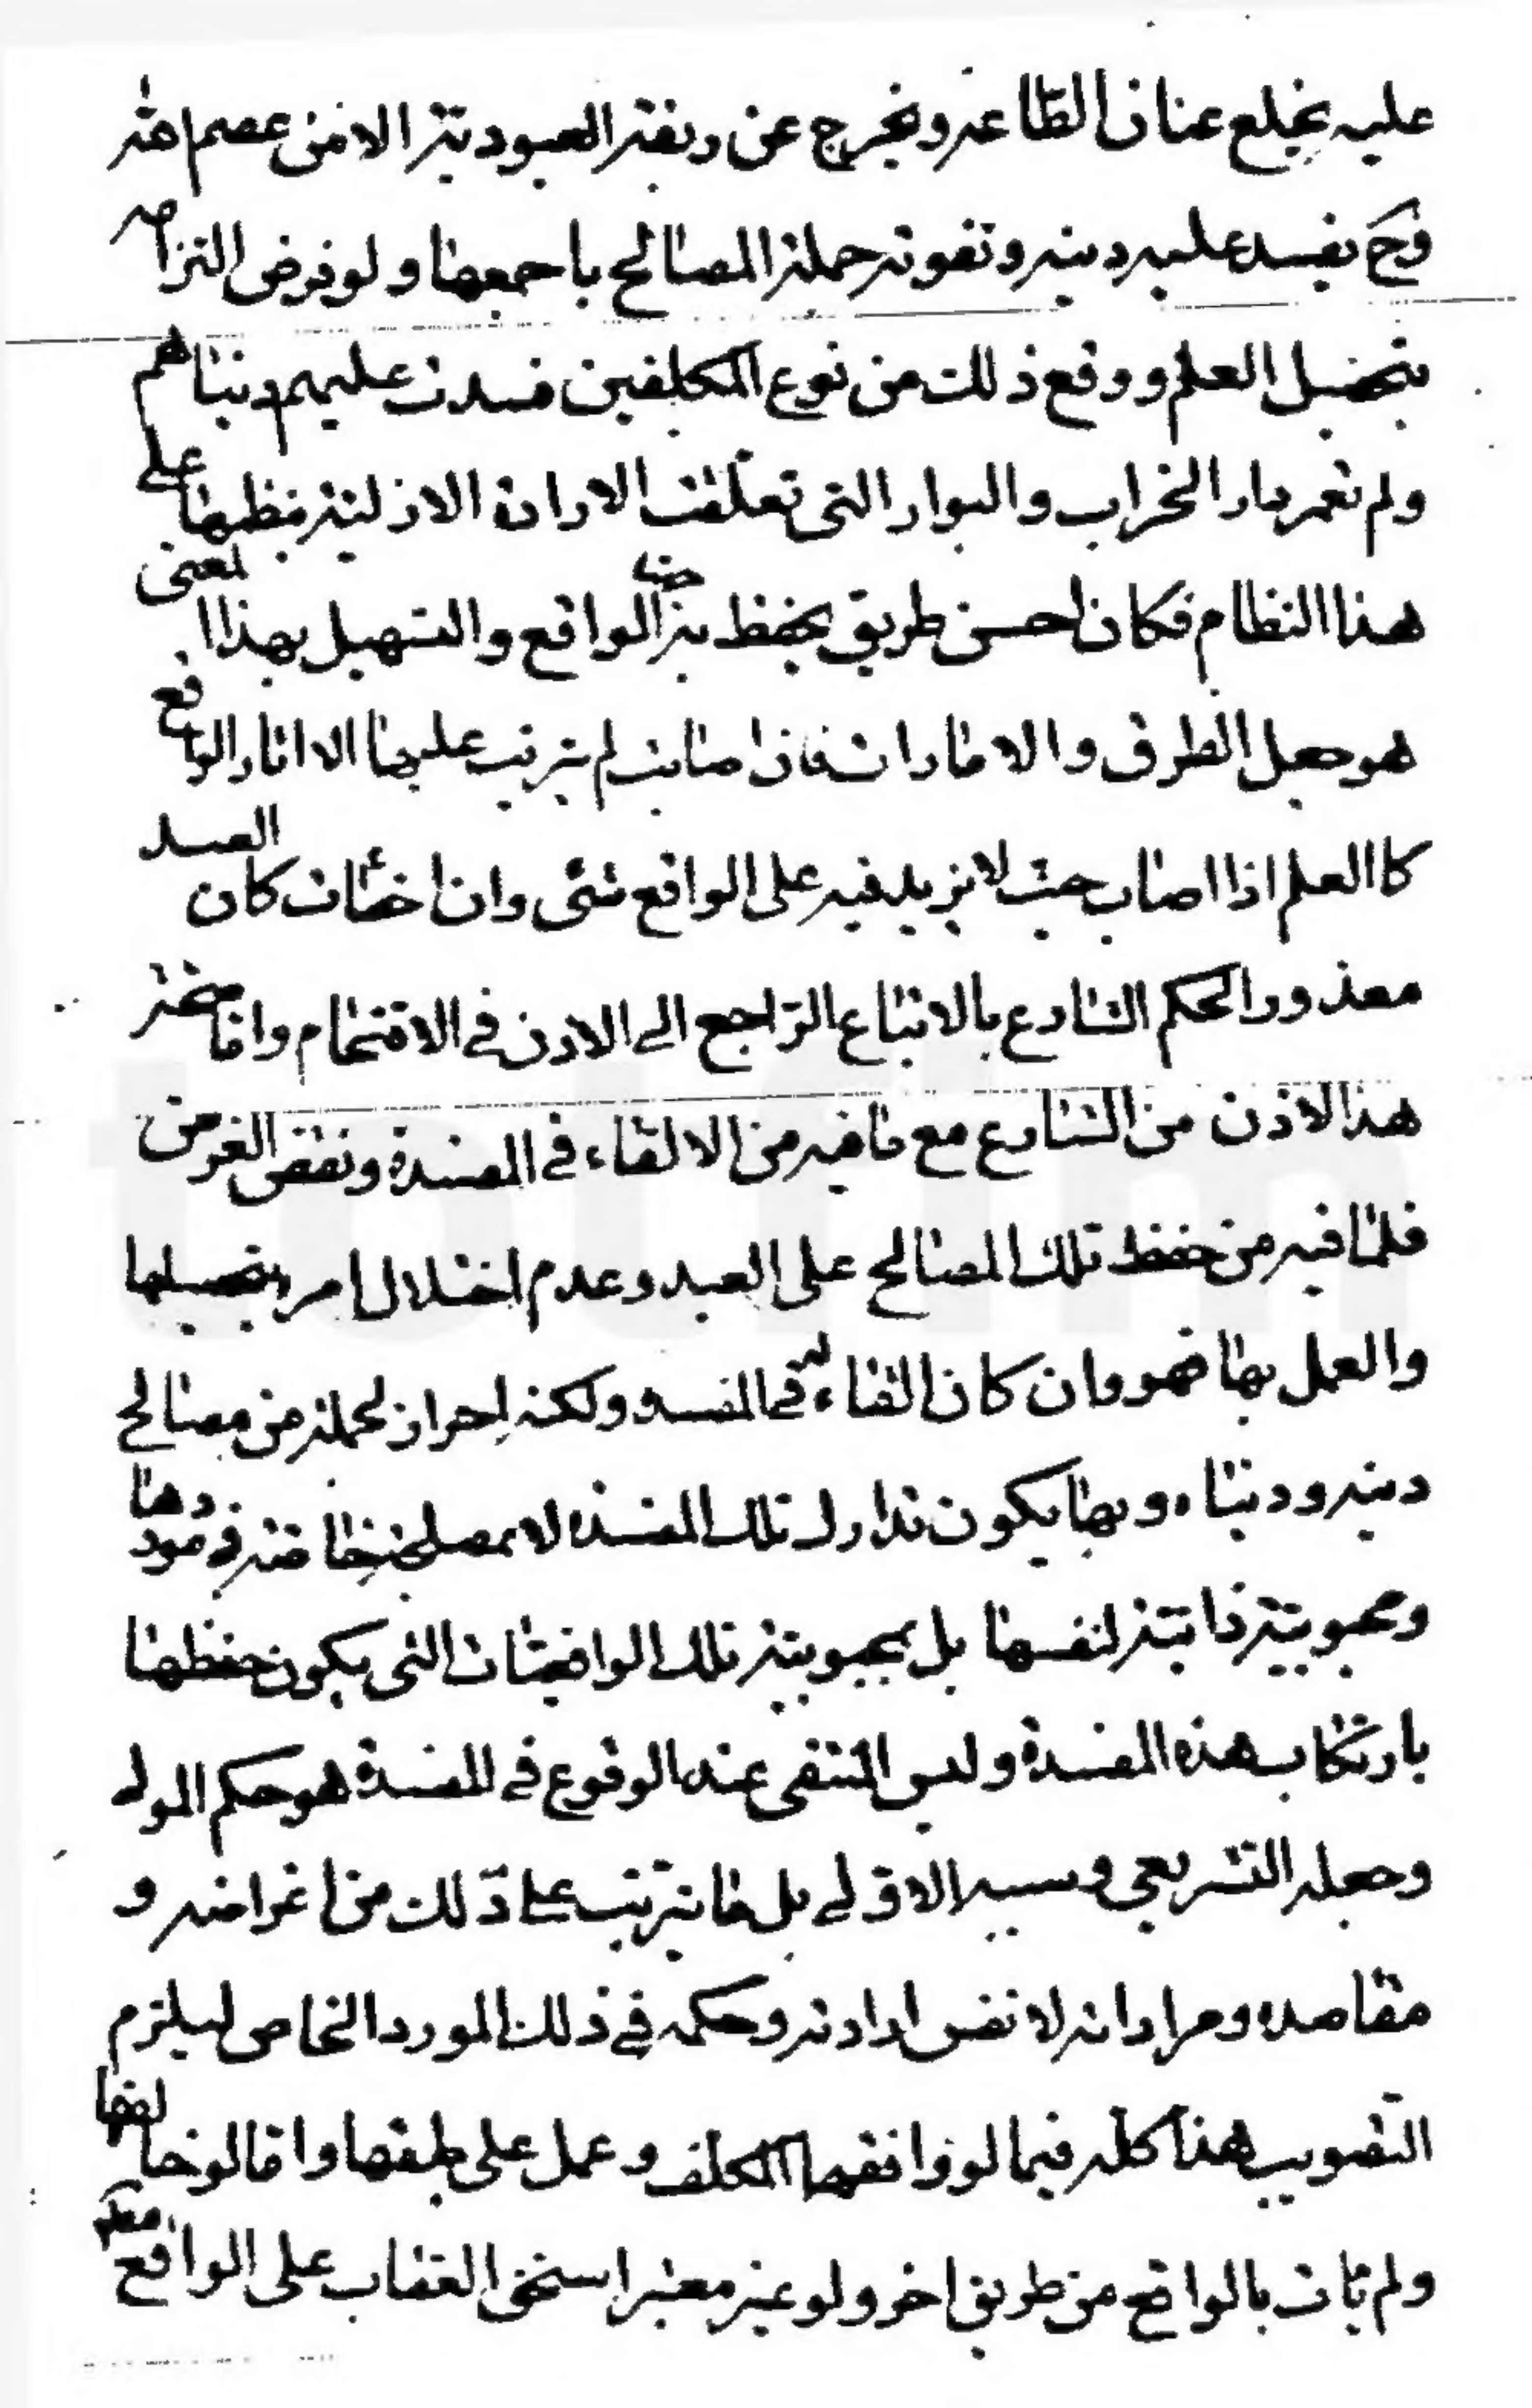 عليه يخلع عنان الطاعه ويخرج عن ربقة العبودية الا من عصم الله
وح يفسد عليه دينه وتفوته جملة المصالح باجمعها ولو فرض التزامه
بتحصيل العلم ووقع ذلك من نوع المكلفين فسدت عليهم دنياهم
ولم تعمر دار الخراب والبوار التى تعلقت الارادة الازلية بنظمها على
هذا النظام فكان احسن طريق يحفظ به الواقع والتسهيل بهذا المعنى
هو جعل الطرق والامارات فان اصابت لم يترتب عليها الا اثار الواقع
كالعلم اذا اصاب حيث لا يزيد فيه على الواقع شئى وان اخطات كان العبد
معذورا لحكم الشارع بالاتباع الراجع الى الاذن فى الاقتحام واما صحة
هذا الاذن من الشارع مع ما فيه من الالقاء فى المفسدة ونقض الغرض
فلما فيه من حفظ تلك المصالح على العبد وعدم اختلال امره بتحصيلها
والعمل بها فهو وان كان القاء له فى المفسده ولكنه احراز لجملة من مصالح
دينه ودنياه وبها يكون تدارك تلك المفسده لا بمصلحة خاصة فى موردها
ومحبوبية ذاتية لنفسها بل بمحبوبية تلك الواقعيات التى يكون حفظها
بارتكاب هذه المفسدة وليس المنتفى عند الوقوع فى المفسدة هو حكم المولى
وجعله التشريعى وسببه الاولى بل ما يترتب على ذلك من اغراضه و
مقاصده ومراداته لا نفس ارادته وحكمه فى ذلك المورد الخاص ليلزم
التصويب هذا كله فيما لو وافقها المكلف وعمل على طبقها واما لو خالفها
ولم يات بالواقع من طريق اخر ولو غير معتبر استحق العقاب على الواقع